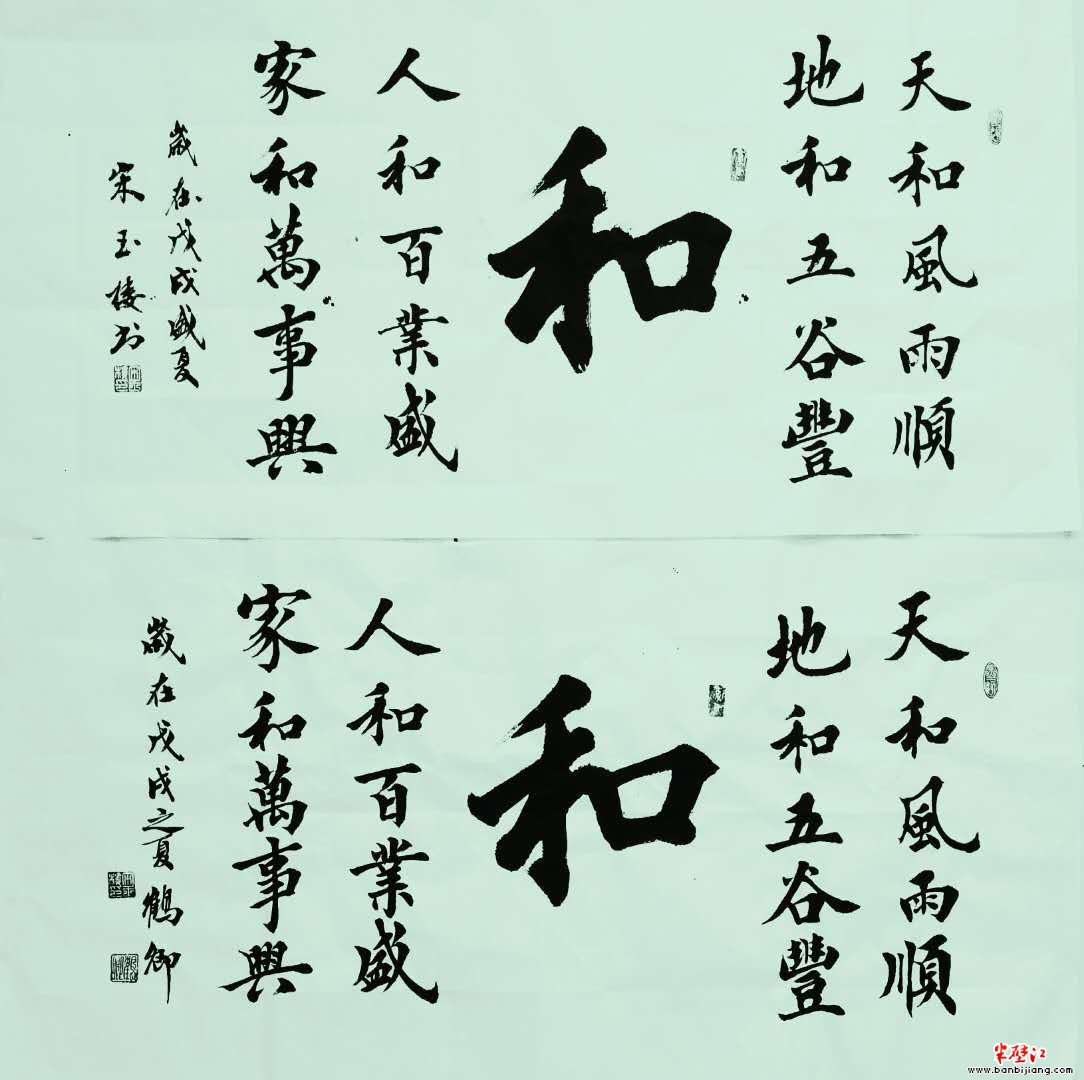 天和風雨順
地和五谷豐
和
人和百業盛
家和萬事興
歲在戊戌盛夏
宋玉楼书
天和風雨順
地和五谷豐
和
人和百業盛
家和萬事興
歲在戊戌之夏鶴卿
半壁江
www.banbijiang.com